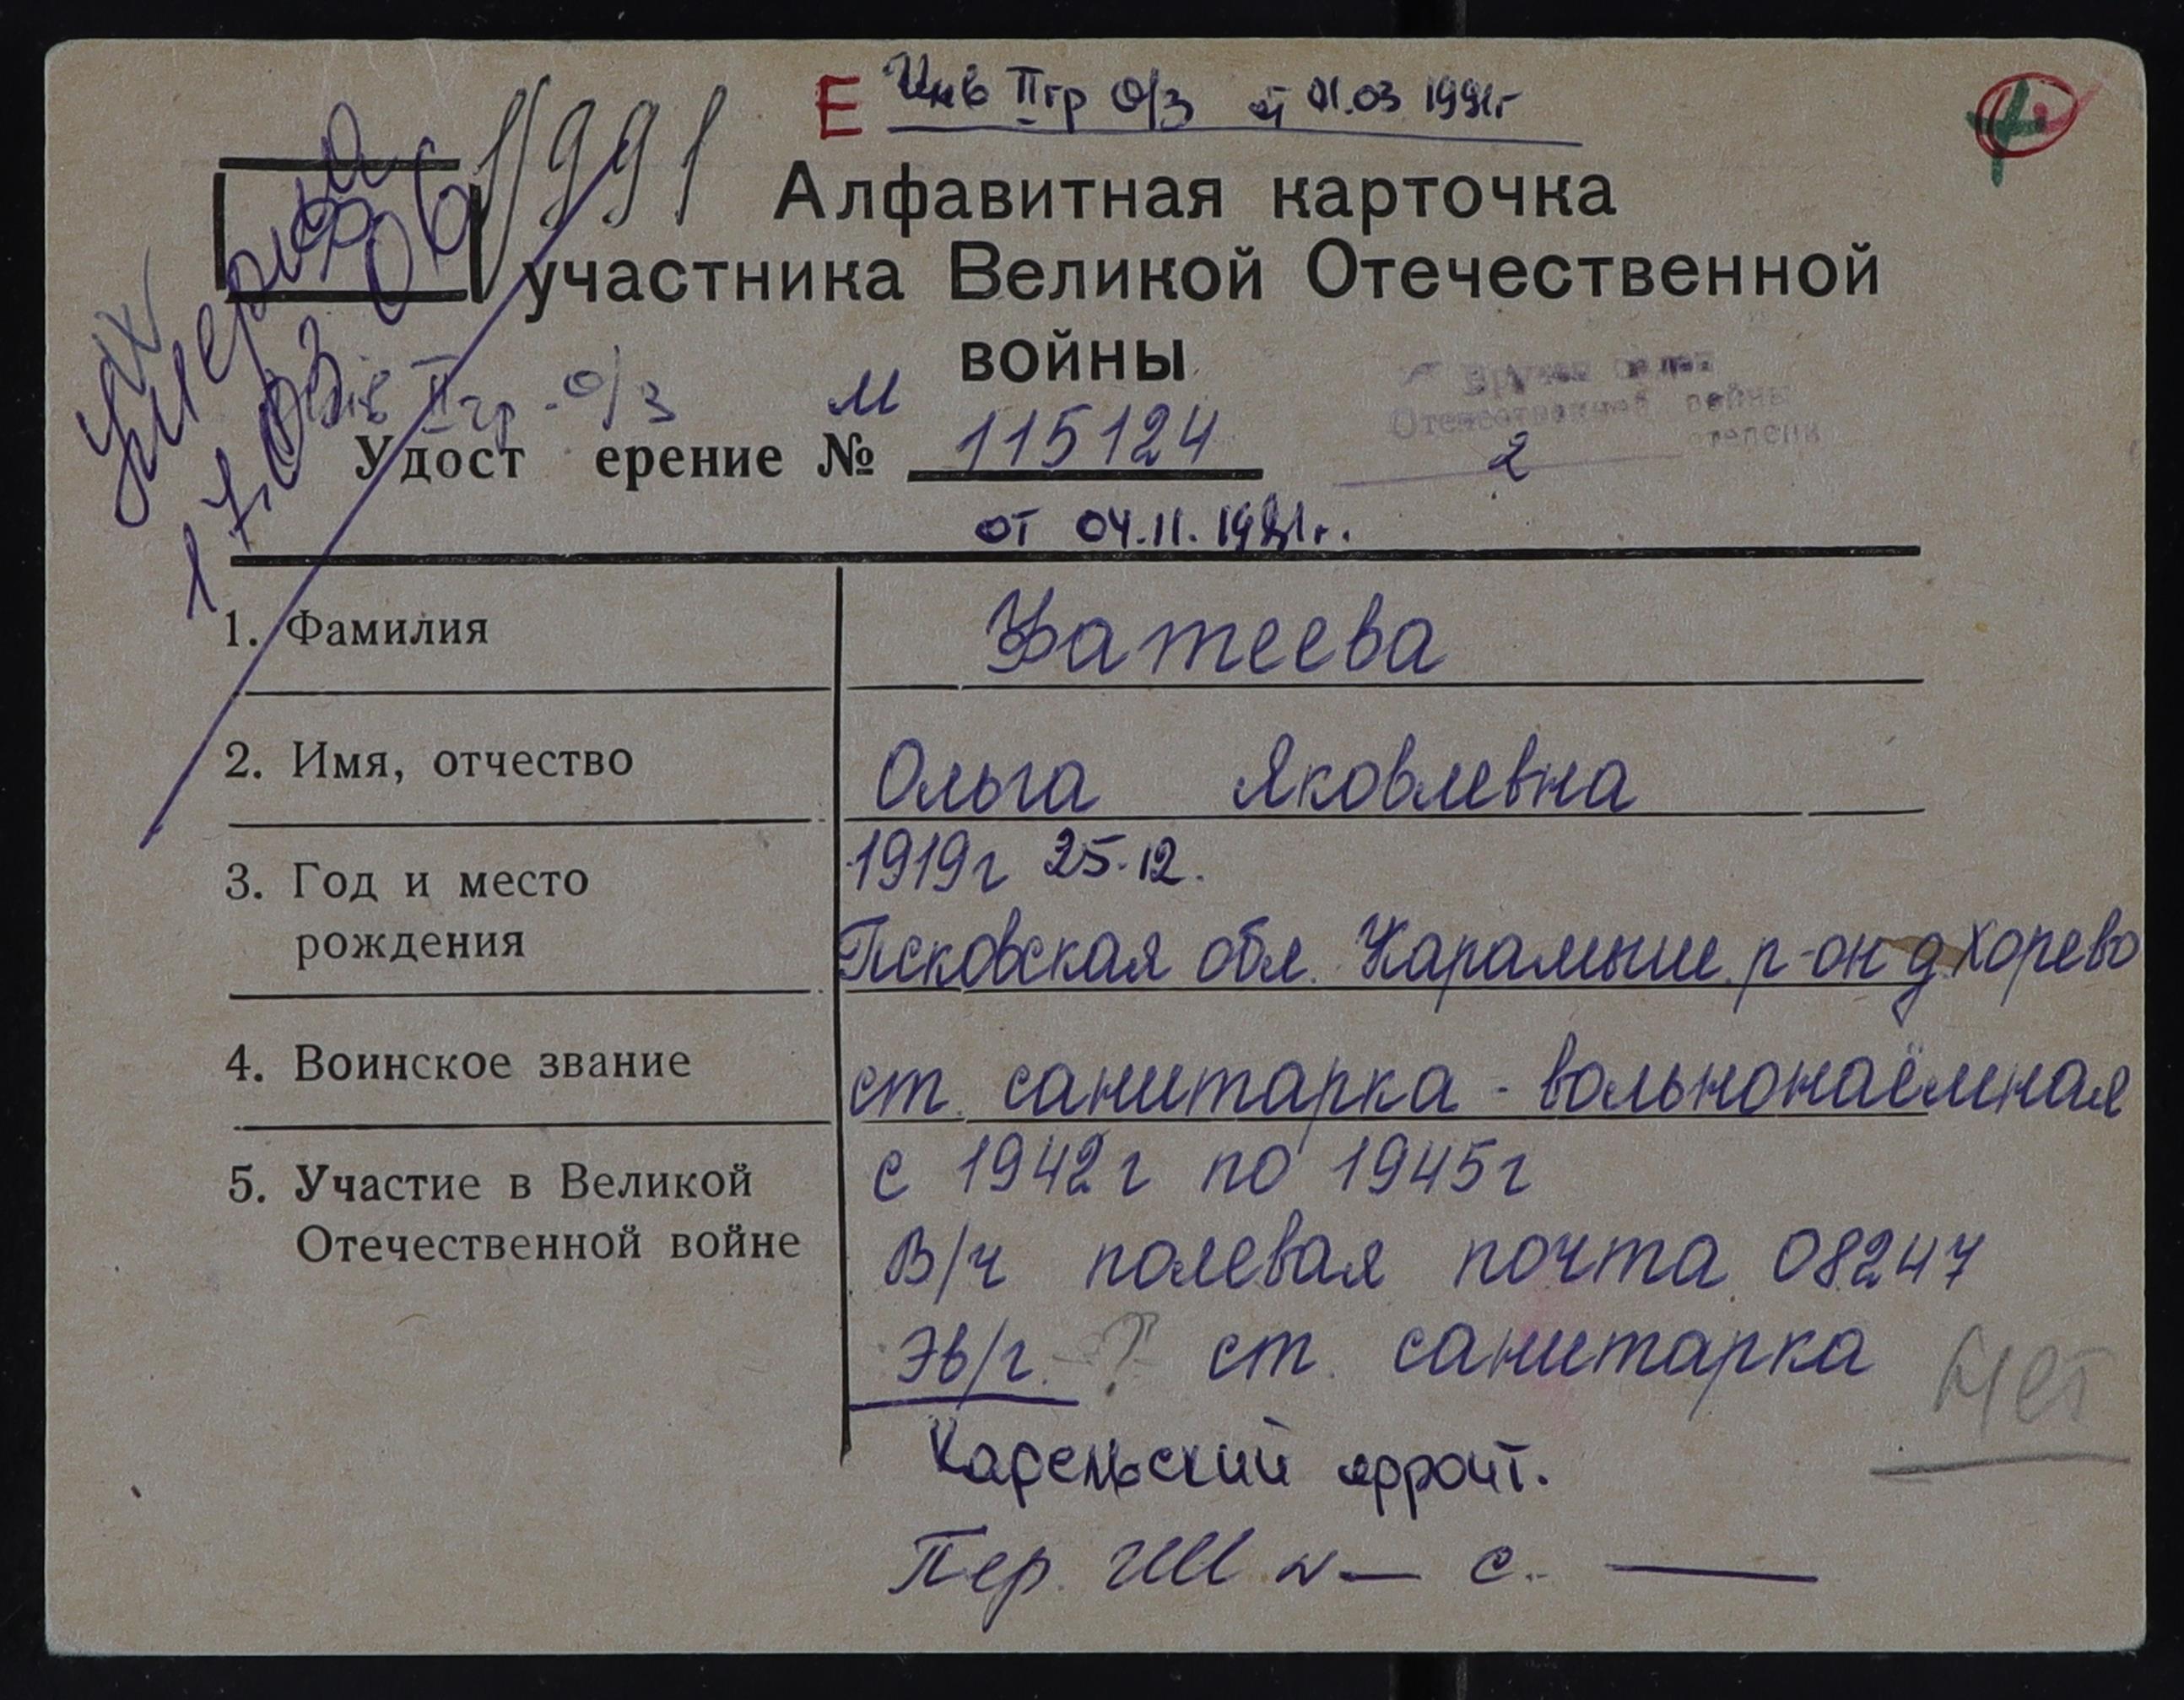 Е Инв IIгр О/З от 01.03 1991г
1991
Алфавитная карточка
участника Великой Отечественной
войны
умерла
17.03.06
Инв IIгр. О/З
Удост ерение № М 115124
от 04.11.1981г.
Вручен орден
Отечественной войны
2 степени
1. Фамилия Фатеева
2. Имя, отчество Ольга Яковлевна
3. Год и место 1919г 25.12.
рождения Псковская обл. Карамыш. р-он д. Хорево
4. Воинское звание ст. санитарка - вольнонаёмная
5. Участие в Великой с 1942г по 1945г
Отечественной войне В/ч полевая почта 08247
Эв/г. - ? ст. санитарка нет
Карельский фронт.
Пер. ГШ № — с. —